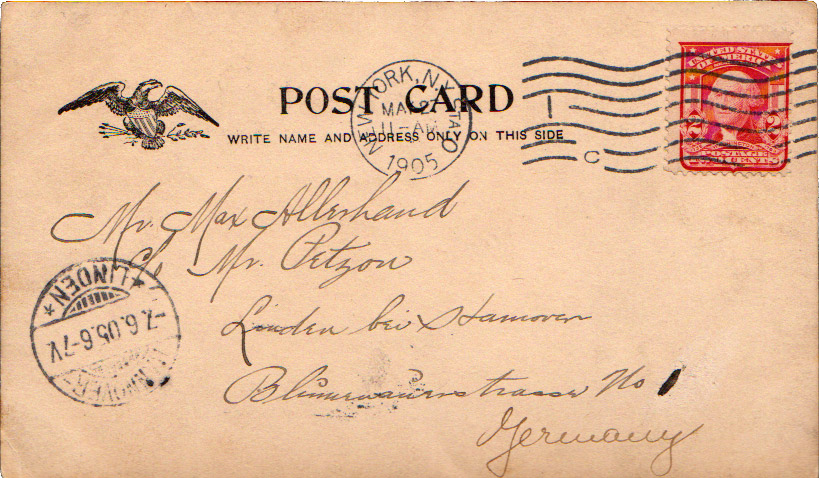 POST CARD
WRITE NAME AND ADDRESS ONLY ON THIS SIDE
NEW YORK, N.Y. STA. O
MAY 2
11-AM
1905
1
C
UNITED STATES
OF AMERICA
2 2
POSTAGE
TWO CENTS
Mr. Max Allerhand
c/o Mr. Petzon
Linden bei Hannover
Blumenauerstrasse No 1
Germany
* LINDEN *
7.6.05.6-7V.
(HANNOVER)